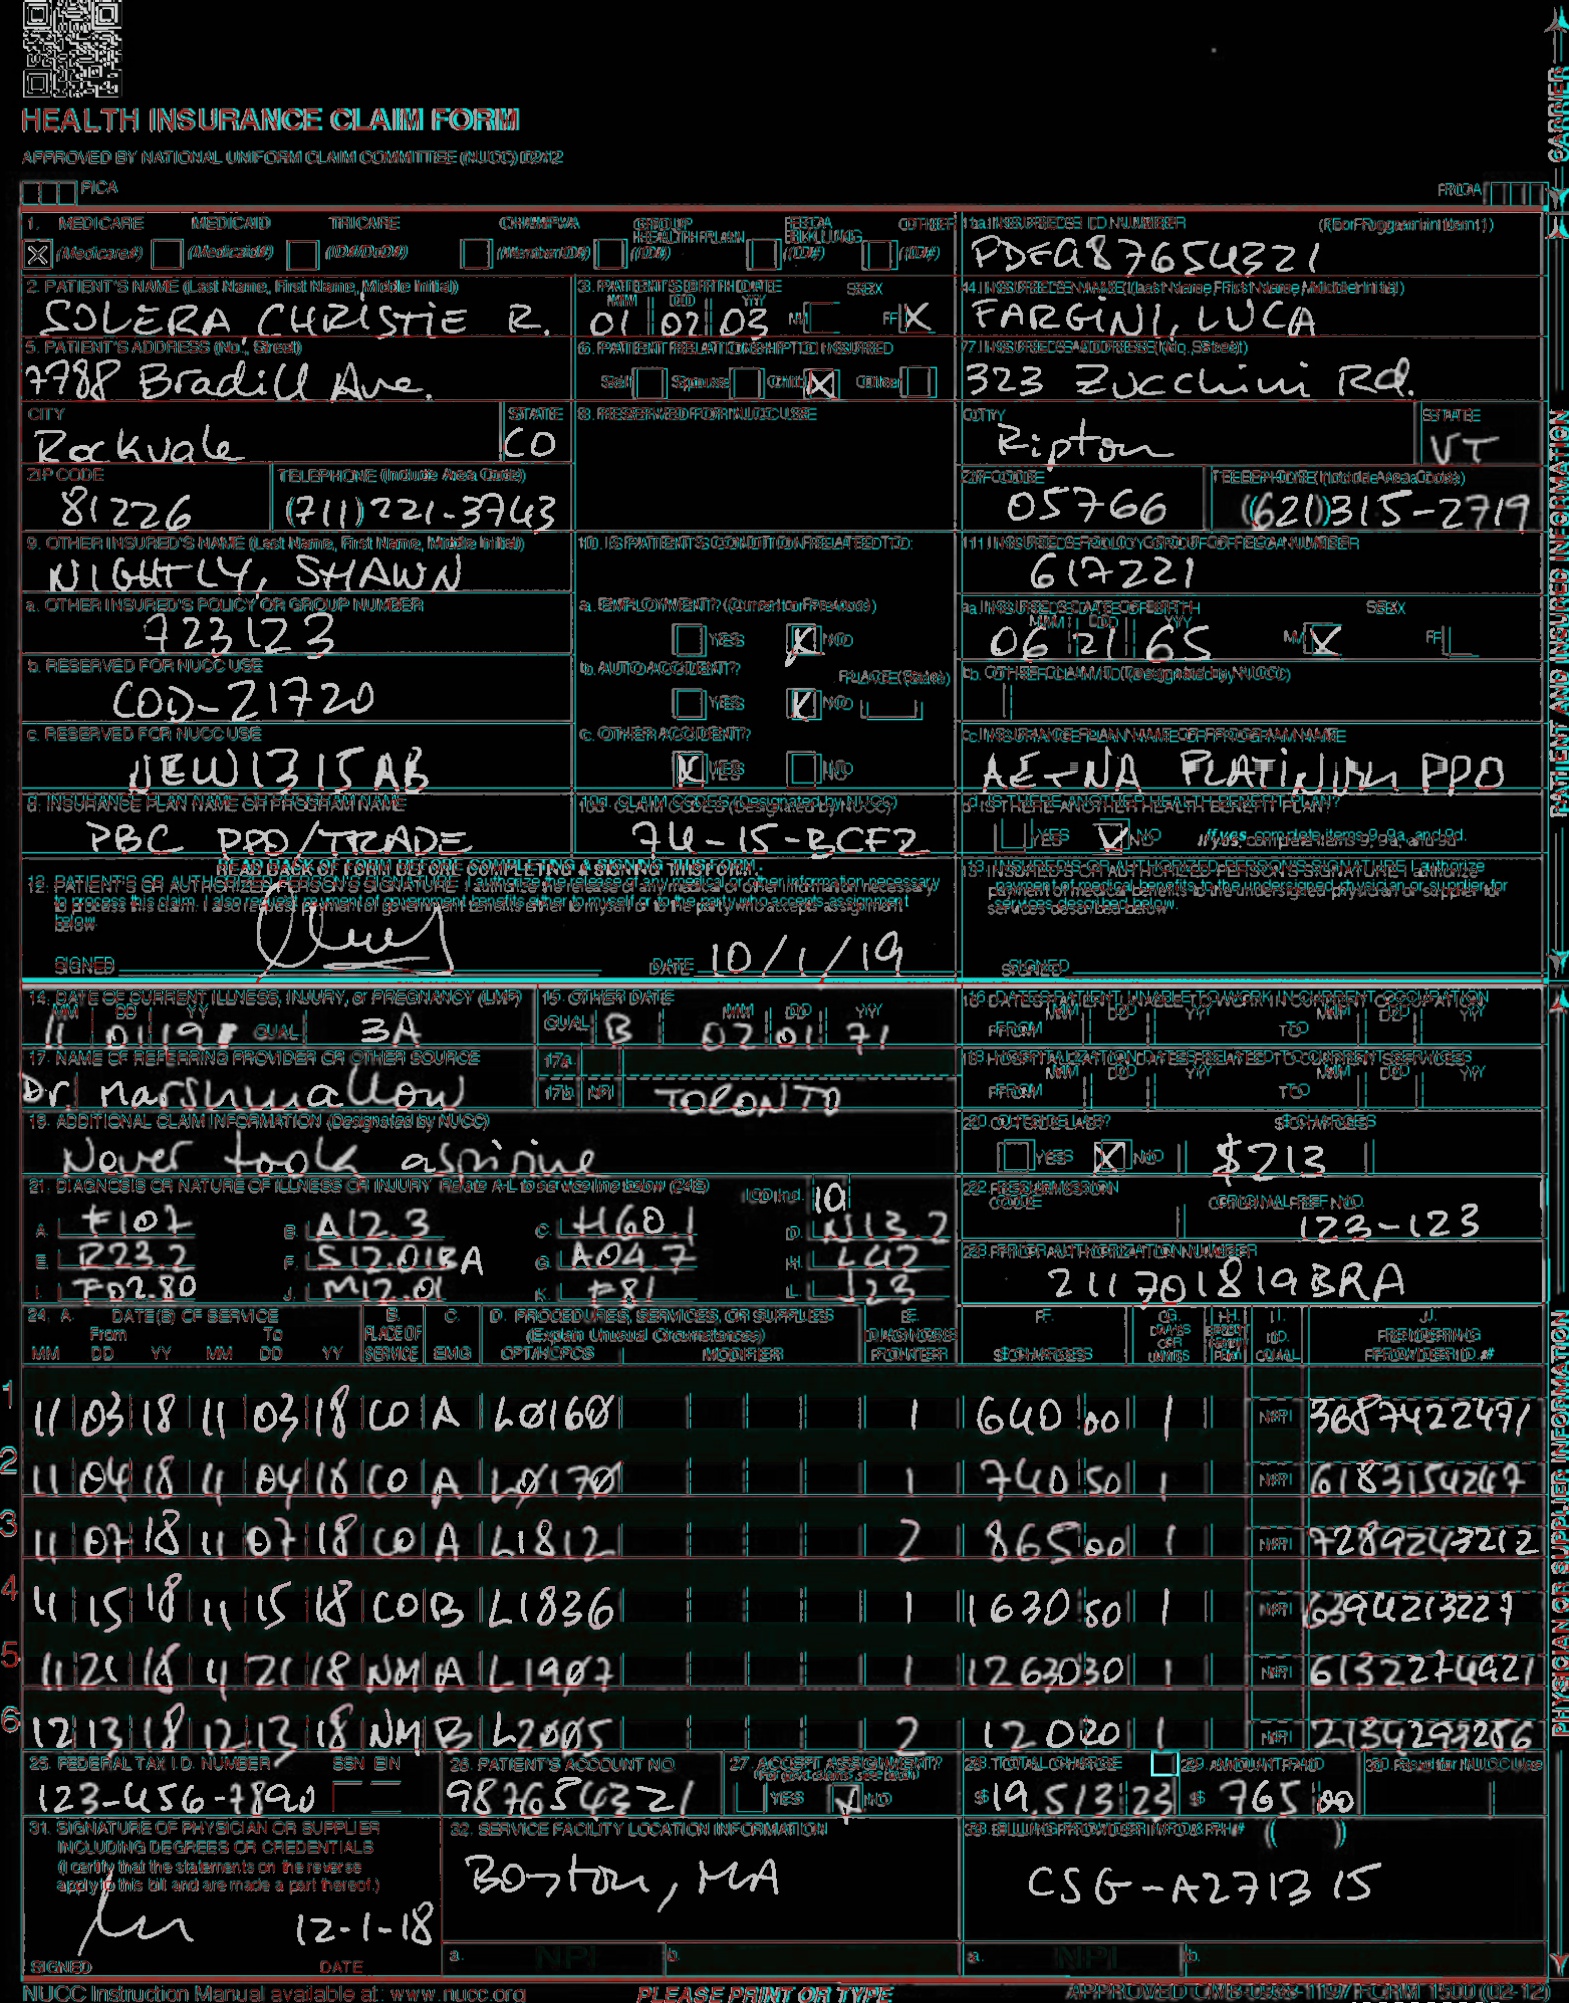 HEALTH INSURANCE CLAIM FORM
APPROVED BY NATIONAL UNIFORM CLAIM COMMITTEE (NUCC) 02/12
PICA PICA
CARRIER
1. MEDICARE MEDICAID TRICARE CHAMPVA GROUP HEALTH PLAN FECA BLK LUNG OTHER
X (Medicare#) (Medicaid#) (ID#/DoD#) (Member ID#) (ID#) (ID#) (ID#)
1a. INSURED'S I.D. NUMBER (For Program in Item 1)
PDFA87654321
2. PATIENT'S NAME (Last Name, First Name, Middle Initial)
SOLERA CHRISTIE R.
3. PATIENT'S BIRTH DATE SEX
MM DD YY
01 02 03 M F X
4. INSURED'S NAME (Last Name, First Name, Middle Initial)
FARGINI, LUCA
5. PATIENT'S ADDRESS (No., Street)
7788 Bradill Ave.
6. PATIENT RELATIONSHIP TO INSURED
Self Spouse Child X Other
7. INSURED'S ADDRESS (No., Street)
323 Zucchini Rd.
CITY STATE
Rockvale CO
8. RESERVED FOR NUCC USE
CITY STATE
Ripton VT
ZIP CODE TELEPHONE (Include Area Code)
81226 (711) 221-3743
ZIP CODE TELEPHONE (Include Area Code)
05766 (621) 315-2719
9. OTHER INSURED'S NAME (Last Name, First Name, Middle Initial)
NIGHTLY, SHAWN
10. IS PATIENT'S CONDITION RELATED TO:
11. INSURED'S POLICY GROUP OR FECA NUMBER
617221
a. OTHER INSURED'S POLICY OR GROUP NUMBER
723123
a. EMPLOYMENT? (Current or Previous)
YES X NO
a. INSURED'S DATE OF BIRTH SEX
MM DD YY
06 21 65 M X F
b. RESERVED FOR NUCC USE
COD-21720
b. AUTO ACCIDENT? PLACE (State)
YES X NO
b. OTHER CLAIM ID (Designated by NUCC)
c. RESERVED FOR NUCC USE
NEW1315AB
c. OTHER ACCIDENT?
X YES NO
c. INSURANCE PLAN NAME OR PROGRAM NAME
AETNA PLATINUM PPO
d. INSURANCE PLAN NAME OR PROGRAM NAME
PBC PPO/TRADE
10d. CLAIM CODES (Designated by NUCC)
74-15-BCF2
d. IS THERE ANOTHER HEALTH BENEFIT PLAN?
YES X NO If yes, complete items 9, 9a, and 9d.
READ BACK OF FORM BEFORE COMPLETING & SIGNING THIS FORM.
12. PATIENT'S OR AUTHORIZED PERSON'S SIGNATURE I authorize the release of any medical or other information necessary
to process this claim. I also request payment of government benefits either to myself or to the party who accepts assignment
below.
SIGNED DATE 10/1/19
13. INSURED'S OR AUTHORIZED PERSON'S SIGNATURE I authorize
payment of medical benefits to the undersigned physician or supplier for
services described below.
SIGNED
PATIENT AND INSURED INFORMATION
14. DATE OF CURRENT ILLNESS, INJURY, or PREGNANCY (LMP)
MM DD YY
11 01 19 QUAL. 3A
15. OTHER DATE MM DD YY
QUAL. B 02 01 71
16. DATES PATIENT UNABLE TO WORK IN CURRENT OCCUPATION
MM DD YY MM DD YY
FROM TO
17. NAME OF REFERRING PROVIDER OR OTHER SOURCE
Dr. Marshmallow
17a.
17b. NPI TORONTO
18. HOSPITALIZATION DATES RELATED TO CURRENT SERVICES
MM DD YY MM DD YY
FROM TO
19. ADDITIONAL CLAIM INFORMATION (Designated by NUCC)
Never took aspirine
20. OUTSIDE LAB? $ CHARGES
YES X NO $213
21. DIAGNOSIS OR NATURE OF ILLNESS OR INJURY Relate A-L to service line below (24E) ICD Ind. 10
A. F107 B. A12.3 C. H60.1 D. N13.2
E. R23.2 F. S12.01BA G. A04.7 H. L42
I. F02.80 J. M12.01 K. F81 L. J23
22. RESUBMISSION CODE ORIGINAL REF. NO.
123-123
23. PRIOR AUTHORIZATION NUMBER
211701819BRA
24. A. DATE(S) OF SERVICE B. C. D. PROCEDURES, SERVICES, OR SUPPLIES E. F. G. H. I. J.
From To PLACE OF (Explain Unusual Circumstances) DIAGNOSIS DAYS OR UNITS ID. RENDERING
MM DD YY MM DD YY SERVICE EMG CPT/HCPCS MODIFIER POINTER $ CHARGES QUAL. PROVIDER ID. #
1 11 03 18 11 03 18 CO A L0160 1 640 00 1 NPI 3687422471
2 11 04 18 11 04 18 CO A L0170 1 740 50 1 NPI 6183154247
3 11 07 18 11 07 18 CO A L1812 2 865 00 1 NPI 7289243212
4 11 15 18 11 15 18 CO B L1836 1 1630 50 1 NPI 6394213227
5 11 21 18 11 21 18 NM A L1907 1 1263030 1 NPI 6132274921
6 12 13 18 12 13 18 NM B L2005 2 12020 1 NPI 2134293286
25. FEDERAL TAX I.D. NUMBER SSN EIN
123-456-7890
26. PATIENT'S ACCOUNT NO.
987654321
27. ACCEPT ASSIGNMENT?
(For govt. claims, see back)
YES X NO
28. TOTAL CHARGE
$ 19.513 23
29. AMOUNT PAID
$ 765 00
30. Rsvd for NUCC Use
31. SIGNATURE OF PHYSICIAN OR SUPPLIER
INCLUDING DEGREES OR CREDENTIALS
(I certify that the statements on the reverse
apply to this bill and are made a part thereof.)
12-1-18
SIGNED DATE
32. SERVICE FACILITY LOCATION INFORMATION
Boston, MA
a. NPI b.
33. BILLING PROVIDER INFO & PH # ( )
CSG-A271315
a. NPI b.
PHYSICIAN OR SUPPLIER INFORMATION
NUCC Instruction Manual available at: www.nucc.org PLEASE PRINT OR TYPE APPROVED OMB-0938-1197 FORM 1500 (02-12)